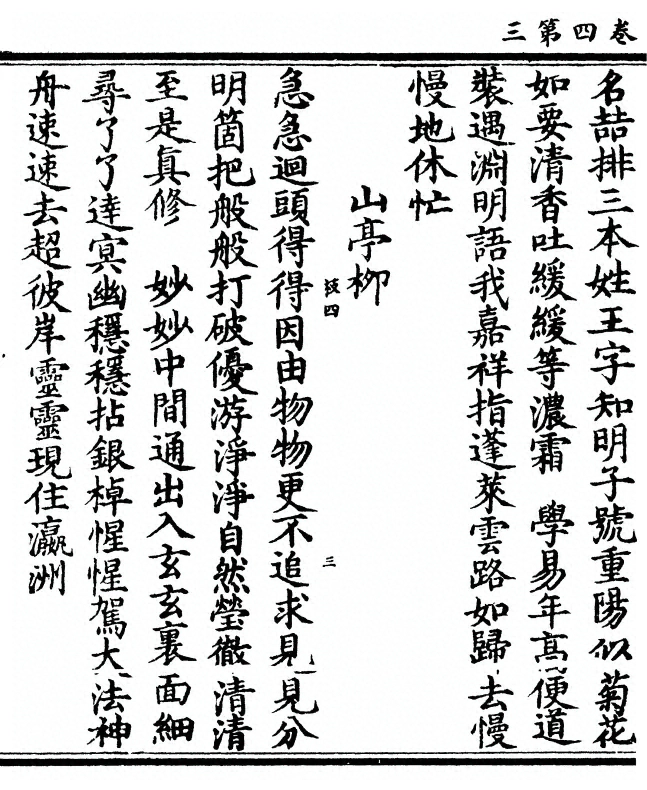 卷四第三
名喆排三本姓王字知明子號重陽似菊花
如要清香吐緩緩等濃霜　學易年高便道
裝遇淵明語我嘉祥指蓬萊雲路如歸去慢
慢地休忙
山亭柳
急急迴頭得得因由物物更不追求見見分
枝四
三
明箇把般般打破優游淨淨自然瑩徹清清
至是眞修　妙妙中間通出入玄玄裏面細
尋了了達冥幽穩穩拈銀棹惺惺駕大法神
舟速速去超彼岸靈靈現住瀛洲